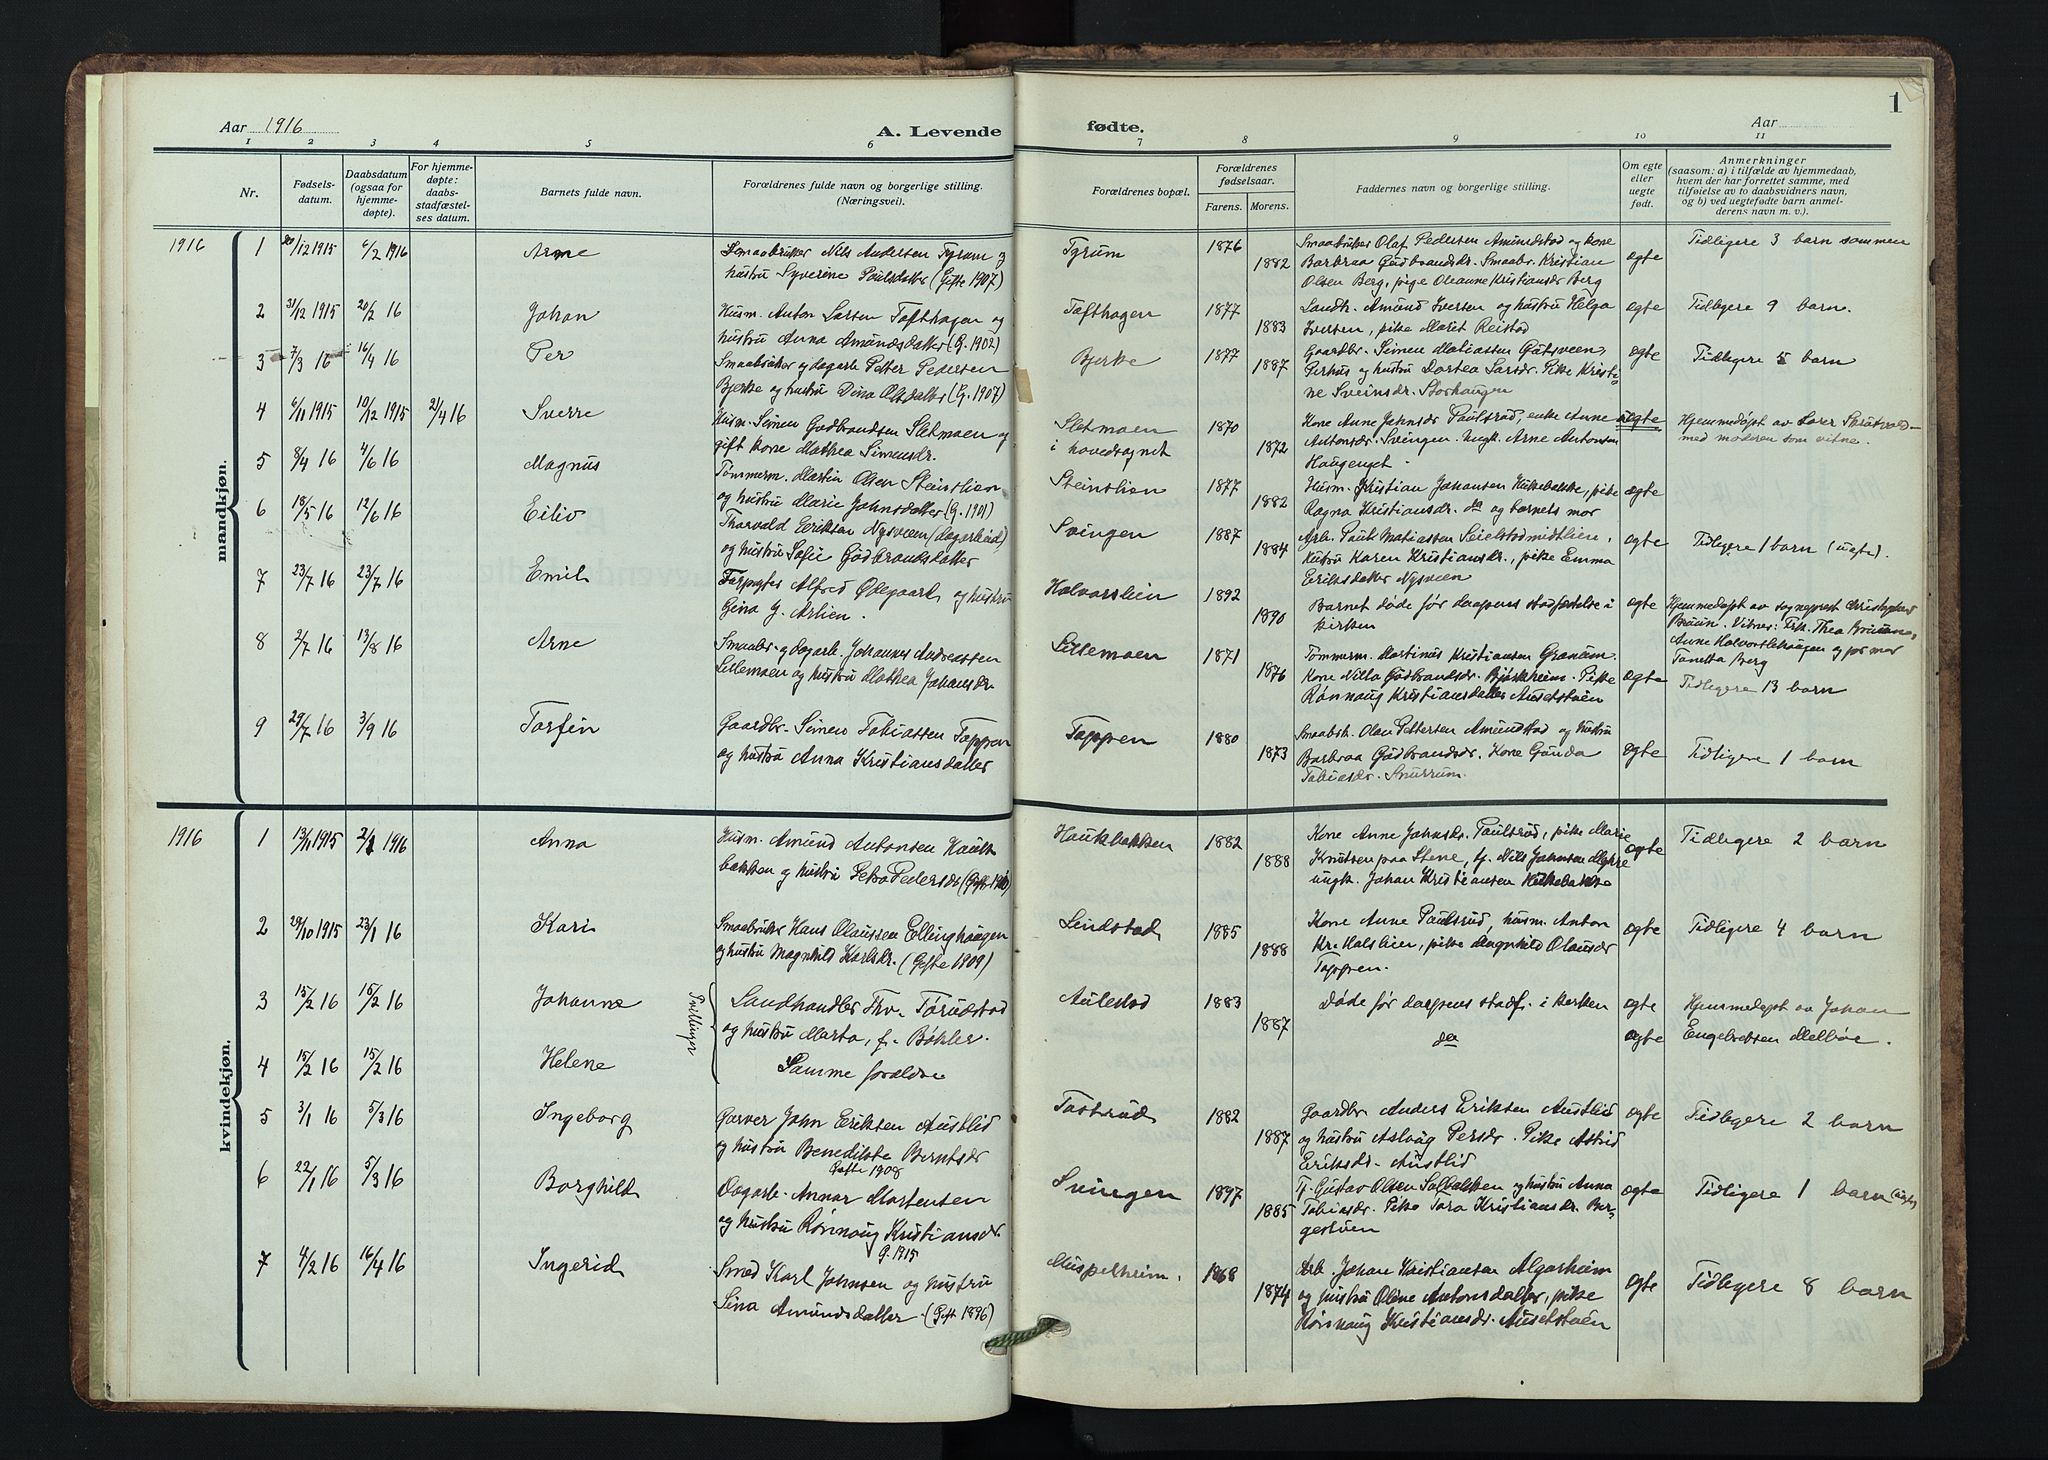 1
Aar 1916
A. Levende fødte.
Aar
1 2 3 4 5 6 7 8 9 10 11
Nr.
Fødsels-
datum.
Daabsdatum
(ogsaa for
hjemme-
døpte).
For hjemme-
døpte:
daabs-
stadfæstel-
ses datum.
Barnets fulde navn.
Forældrenes fulde navn og borgerlige stilling.
(Næringsvei).
Forældrenes bopæl.
Forældrenes
fødselsaar.
Farens. Morens.
Faddernes navn og borgerlige stilling.
Om egte
eller
uegte
født.
Anmerkninger
(saasom: a) i tilfælde av hjemmedaab,
hvem der har forrettet samme, med
tilføielse av to daabsvidners navn,
og b) ved uegtefødte barn anmel-
derens navn m. v.).
mandkjøn.
1916 1 20/12 1915 6/2 1916 Arne
Smaabruker Nils Andersen Tyrum og
hustru Syverine Paulsdatter (Gifte 1907)
Tyrum 1876 1882
Smaabruker Olaf Pedersen Amundstad og kone
Barbraa Gudbrandsdr. Smaabr. Kristian
Olsen Berg, pige Oleanne Kristiansdr Berg
egte Tidligere 3 barn sammen
2 31/12 1915 20/2 16 Johan
Husm. Anton Larsen Tofthagen og
hustru Anna Amundsdatter (G. 1902)
Tofthagen 1877 1883
Landh. Amund Iversen og hustru Helga
Iversen, pike Marit Reistad
egte Tidligere 9 barn.
3 7/3 16 16/4 16 Per
Smaabruker og dagarb. Petter Pedersen
Bjerke og hustru Dina Olsdatter (G. 1907)
Bjerke 1877 1887
Gaardbr. Simen Matiassen Gutsveen,
Perhus og hustru Dortea Larsdr. Pike Kristi-
ne Sveinsdr. Storhaugen
egte Tidligere 5 barn
4 6/11 1915 10/12 1915 2/4 16 Sverre
Husm. Simen Gudbrandsen Sletmoen og
gift kone Mathea Simensdr.
Sletmoen
i hovedsognet
1870 1872
Kone Anne Johnsdr Paulsrud, enke Anne
Antonsdr. Svingen. Ungk. Arne Antonsen
Haugenget.
uegte Hjemmedøpt av lærer
med moderen som vitne.
5 8/4 16 4/6 16 Magnus
Tømmerm. Martin Olsen Steinslien
og hustru Marie Johnsdatter (G. 1901)
Steinslien 1877 1882
Husm. Kristian Johansen Hukebakke, pike
Ragna Kristiansdr. do og barnets mor
egte
6 18/5 16 12/6 16 Eiliv
Thorvald Eriksen Nysveen (dagarbeid)
og hustru Sofie Gudbrandsdatter
Svingen 1887 1884
Arb. Paul Matiassen Seielstadmidtlien,
hustru Karen Kristiansdr., pike Emma
Eriksdatter Nysveen
egte Tidligere 1 barn (uegte).
7 23/7 16 23/7 16 Emil
Alfred Ødegaard og hustru
Gina g. Arlien.
Halvorslien 1892 1890
Barnet døde før daapens stadfæstelse i
kirken
egte
Hjemmedøpt av sogneprest Christopher
Bruun. Vitner: Frk. Thea Bruun,
Anne Halvorslehaugen og jormor
Tanetta Berg
8 2/7 16 13/8 16 Arne
Smaabr. og dagarb. Johannes Andreassen
Lillemoen og hustru Mathea Johansdr.
Lillemoen 1871 1876
Tømmerm. Martinus Kristiansen Granum.
Kone Nilla Gudbrandsdr. Bjørkheim. Pike
Rønnaug Kristiansdatter Auselstuen
egte Tidligere 13 barn
9 29/7 16 3/9 16 Torfin
Gaardbr. Simen Tobiassen Toppen
og hustru Anna Kristiansdatter
Toppen 1880 1873
Smaabr. Olav Pettersen Amundstad og hustru
Barbraa Gudbrandsdr. Kone Gunda
Tobiasdr. Snurrum.
egte Tidligere 1 barn
kvindekjøn.
1916 1 13/11 1915 2/1 1916 Anna
Husm. Amund Antonsen Hauk-
bakken og hustru Petra Pedersdr
Haukbakken 1882 1888
Kone Anne Johnsdr. Paulsrud, pike Marie
Knutsen paa Stene, tj. Nils Johansen Myhre
ungk. Johan Kristiansen Hukebakke
egte Tidligere 2 barn
2 29/10 1915 23/1 16 Kari
Smaabruker Hans Olaussen Ellinghaugen
og hustru Magnhild Karlsdr. (Gifte 1909)
Lindstad 1885 1888
Kone Anne Paulsrud, husm. Anton
Kr. Holslien, pike Magnhild Olausdr
Toppen.
egte Tidligere 4 barn
Tvillinger
3 15/2 16 15/2 16 Johanne
Landhandler Thv. Torudstad
og hustru Marta, f. Bøhler.
Aulestad 1883 1887
Døde før daapens stadf. i kirken
egte Hjemmedøpt av Johan
4 15/2 16 15/2 16 Helene
Samme forældre
do
egte Engebretsen Melbøe.
5 3/1 16 5/3 16 Ingeborg
Garver John Eriksen Austlid
og hustru Benedikte Berntsdr
Gifte 1908
Tostrud 1882 1887
Gaardbr Anders Eriksen Austlid
og hustru Aslaug Persdr. Pike Astrid
Eriksdr. Austlid
egte Tidligere 2 barn
6 22/1 16 5/3 16 Borghild
Dagarb. Annar Mortensen
og hustru Rønnaug Kristiansdr.
G. 1915
Svingen 1897 1885
Tj. Gustav Olsen Solbakken og hustru Anna
Tobiasdr. Pike Tora Kristiansdr. Ber-
gestuen
egte Tidligere 1 barn (uegte)
7 4/2 16 16/4 16 Ingerid
Smed Karl Johnsen og hustru
Lina Amundsdatter (Gift 1896)
Muspelheim. 1868 1874
Arb. Johan Kristiansen Algarheim
og hustru Oline Antonsdatter, pike
Rønnaug Kristiansdr. Auselstuen
egte Tidligere 8 barn